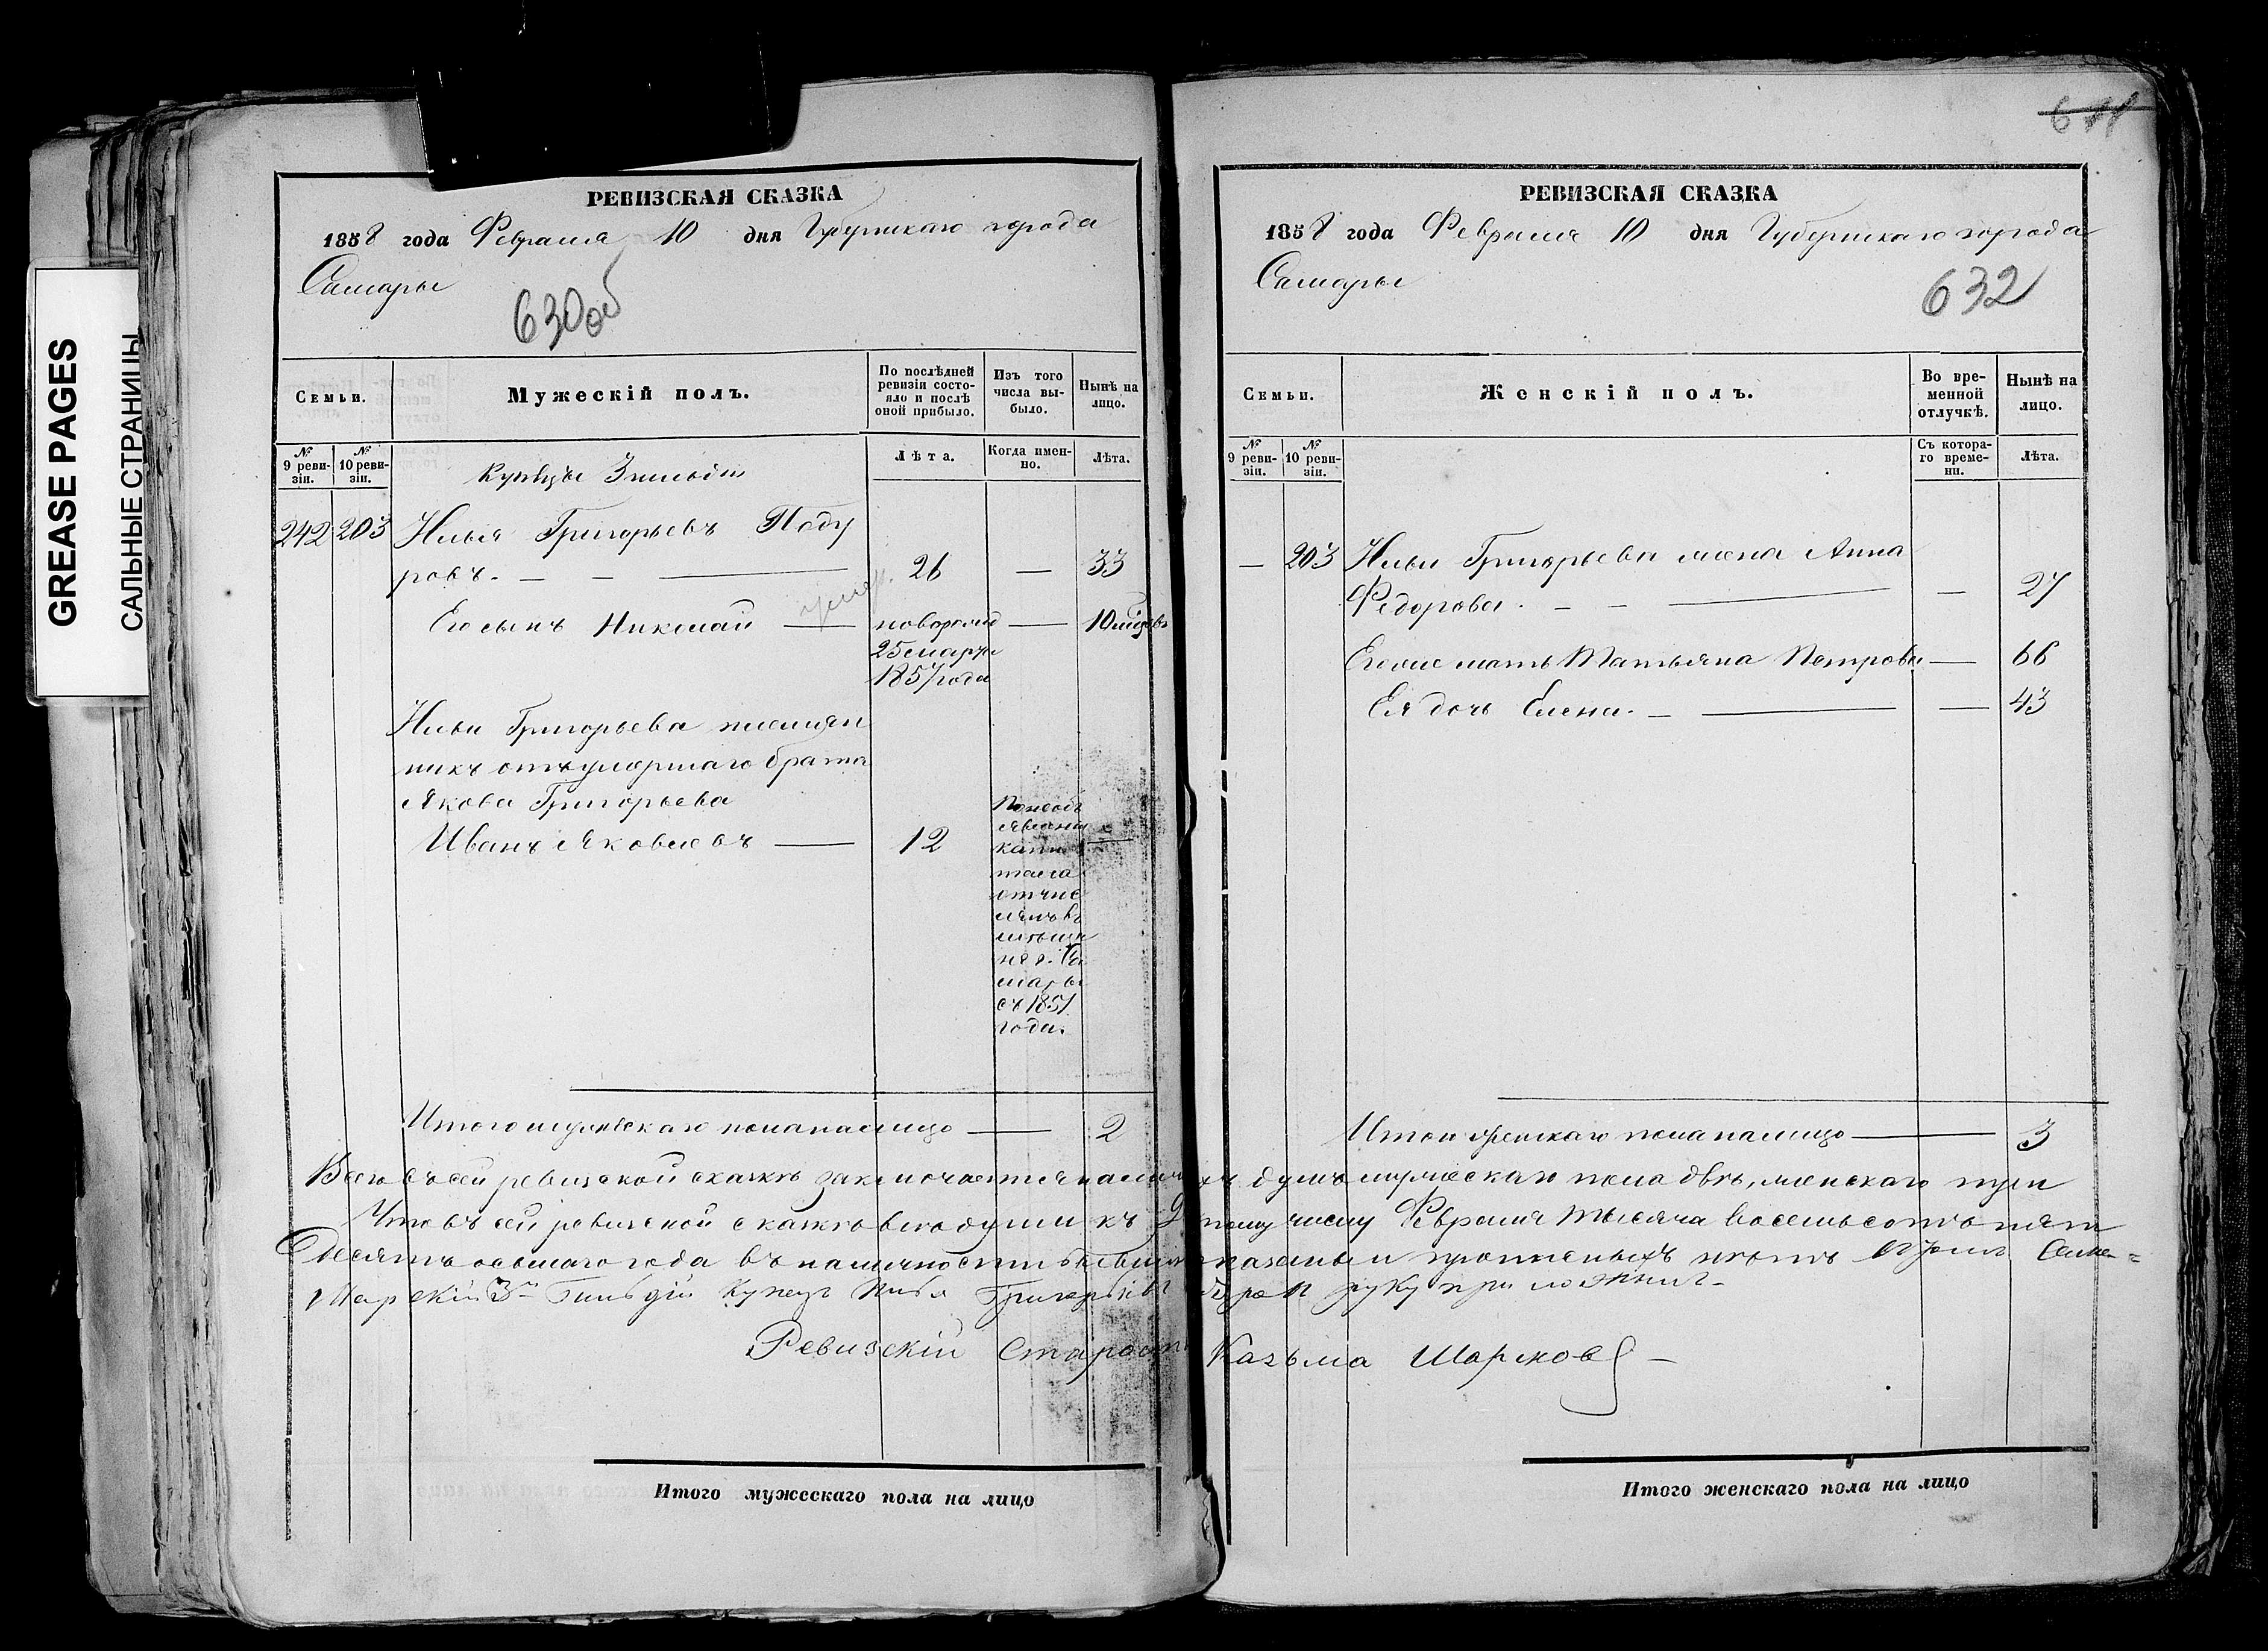 GREASE PAGES
САЛЬНЫЕ СТРАНИЦЫ
РЕВИЗСКАЯ СКАЗКА
1858 года Февраля 10 дня Губернскаго города
Самары
630об
Семьи.
Мужескій полъ.
По послѣдней ревизіи состояло и послѣ оной прибыло.
Изъ того числа выбыло.
Нынѣ на лицо.
№ 9 ревизіи.
№ 10 ревизіи.
Лѣта.
Когда именно.
Лѣта.
Купцы 3 гильдіи
242 203 Илья Григорьевъ Поду
ровъ. — — — 26 — 33
Его сынъ Николай — новорожд — 10 мѣсяцовъ
25 марта
1857 года
Ильи Григорьева племян
никъ отъ умершаго брата
Якова Григорьева
Иванъ Яковлевъ — 12 —
капи
тала
отчис
ленъ въ
мѣщан
не г. Са
мары
съ 1851
года.
Итого мужескаго пола на лицо — 2
611
РЕВИЗСКАЯ СКАЗКА
1858 года Февраля 10 дня Губернскаго города
Самары
632
Семьи.
Женскій полъ.
Во временной отлучкѣ.
Нынѣ на лицо.
№ 9 ревизіи.
№ 10 ревизіи.
Съ котораго времени.
Лѣта.
— 203 Ильи Григорьева жена Анна
Федорова. — — — — 27
Его же мать Татьяна Петрова — 66
Ея дочь Елена. — — — 43
Итого женскаго пола на лицо — 3
Всего въ сей ревизской сказкѣ заключается наличныхъ душъ мужескаго пола двѣ, женскаго три
Что въ сей ревизской сказкѣ всѣ души къ числу Февраля тысяча восемьсотъ пять
десятъ осьмаго года въ наличности бывшія показаны и пропущенныхъ нѣтъ Сама=
рскій 3й Гильдіи Купецъ Илья Григорьевъ руку приложилъ
Ревизскій Староста Казьма Шарковъ —
Итого мужескаго пола на лицо
Итого женскаго пола на лицо